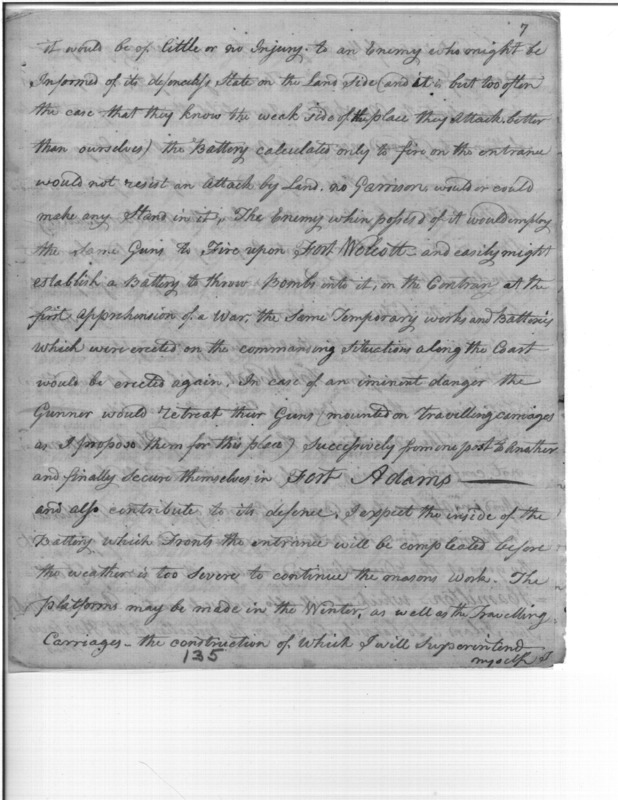 7
it would be of little or no Injury. to an Enemy who might be
Informed of its defenceless State on the Land Side (and it is but too often
the case that they know the weak side of the place they Attack better
than ourselves) the Battery calculated only to fire on the entrance
would not resist an Attack by Land. no Garrison would or could
make any Stand in it, The Enemy when possess'd of it would employ
the same Guns to Fire upon Fort Wolcott - and easily might
establish a Battery to throw Bombs into it, on the Contrary at the
first apprehension of a War, the Same Temporary works and Batteries
which were erected on the commanding situations along the Coast
would be erected again, In case of an iminent danger the
Gunner would retreat their Guns (mounted on travelling carriages
as I propose them for this place) Successively from one post to Another
and finally Secure themselves in Fort Adams
and also contribute to its defence, I expect the inside of the
Battery which Fronts the entrance will be compleated before
the weather is too severe to continue the masons Work. The
platforms may be made in the Winter, as well as the Travelling
Carriages - the construction of Which I will Superintend
myself I
135